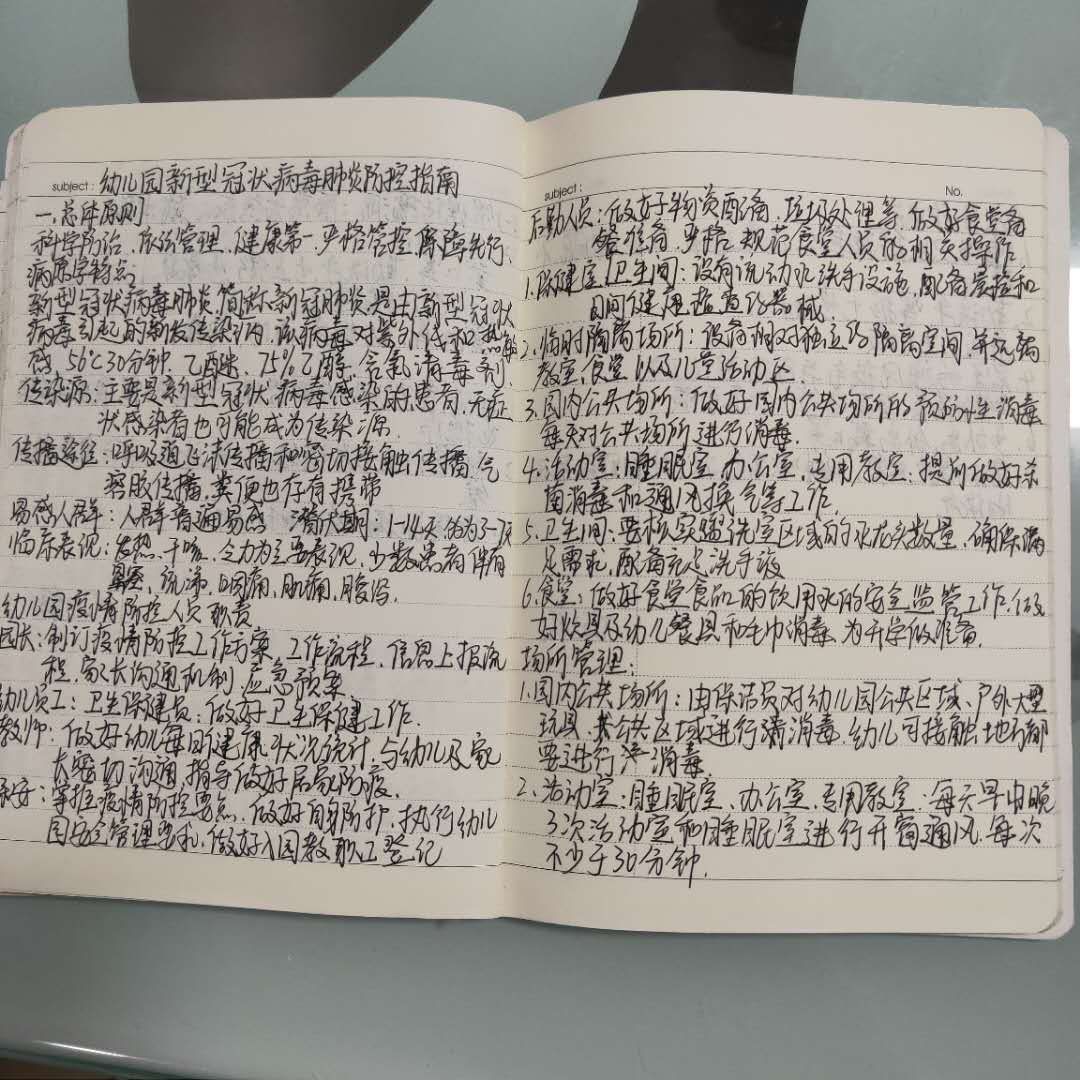 subject: 幼儿园新型冠状病毒肺炎防控指南
一.总体原则
科学防治、依法管理、健康第一、严格管控、保障先行、
病原学特点
新型冠状病毒肺炎简称新冠肺炎是由新型冠状
病毒引起的新发传染病,该病毒对紫外线和热敏
感,56℃30分钟、乙醚、75%乙醇、含氧消毒剂、
传染源:主要是新型冠状病毒感染的患者、无症
状感染者也可能成为传染源.
传播途径:呼吸道飞沫传播和密切接触传播、气
溶胶传播,粪便也存有携带
易感人群:人群普遍易感 潜伏期:1-14天 多为3-7天
临床表现:发热、干咳、乏力为主要表现,少数患者伴有
鼻塞、流涕、咽痛、肌痛、腹泻.
幼儿园疫情防控人员职责
园长:制订疫情防控工作方案、工作流程、信息上报流
程,家长沟通机制,应急预案
幼儿员工:卫生保健员:做好卫生保健工作.
教师:做好幼儿每日健康状况统计,与幼儿及家
长密切沟通,指导做好居家防疫.
保安:掌握疫情防控要点,做好自身防护,执行幼儿
园门管理要求,做好入园教职工登记
subject: No.
后勤人员:做好物资配备,垃圾处理等,做好食堂备
餐准备,严格规范食堂人员的相关操作
1.保健室卫生间:设有流动水洗手设施,配备晨检和
日间健康监查的器械.
2.临时隔离场所:设有相对独立的隔离空间,并远离
教室、食堂以及儿童活动区.
3.园内公共场所:做好园内公共场所的预防性消毒
每天对公共场所进行消毒.
4.活动室:睡眠室、办公室、专用教室:提前做好杀
菌消毒和通风换气等工作.
5.卫生间:要核实盥洗室区域的水龙头数量,确保满
足需求,配备充足洗手液
6.食堂:做好食堂食品的饮用水的安全监管工作,做
好炊具及幼儿餐具和毛巾消毒,为开学做准备.
场所管理:
1.园内公共场所:由保洁员对幼儿园公共区域、户外大型
玩具、公共区域进行清消毒,幼儿可接触地方都
要进行 消毒.
2.活动室:睡眠室、办公室、专用教室:每天早中晚
3次活动室和睡眠室进行开窗通风,每次
不少于30分钟.